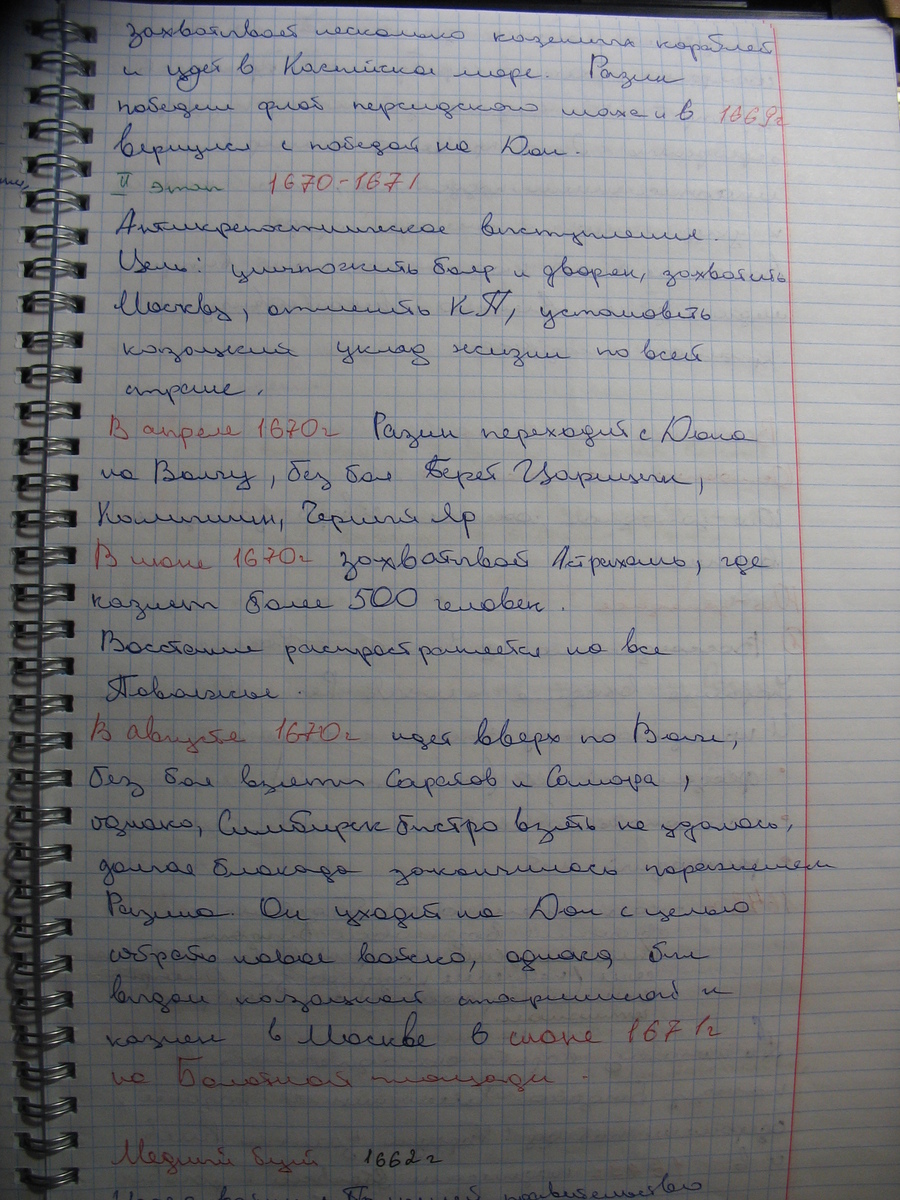 захватывает несколько казенных кораблей
и идет в Каспийское море. Разин
победил флот персидского шаха и в 1669г
вернулся с победой на Дон.
II этап 1670-1671
Антикрепостническое выступление.
Цель: уничтожить бояр и дворян, захватить
Москву, отменить КП, установить
казацкий уклад жизни по всей
стране.
В апреле 1670г Разин переходит с Дона
на Волгу, без боя берет Царицын,
Камышин, Черный Яр
В июне 1670г захватывает Астрахань, где
казнит более 500 человек.
Восстание распространяется на все
Поволжье.
В августе 1670г идет вверх по Волге,
без боя взяты Саратов и Самара,
однако, Симбирск быстро взять не удалось,
долгая блокада закончилась поражением
Разина. Он уходит на Дон с целью
собрать новое войско, однако, был
выдан казацкой старшиной и
казнен в Москве в июне 1671г
на Болотной площади.
Медный бунт 1662г
правительство